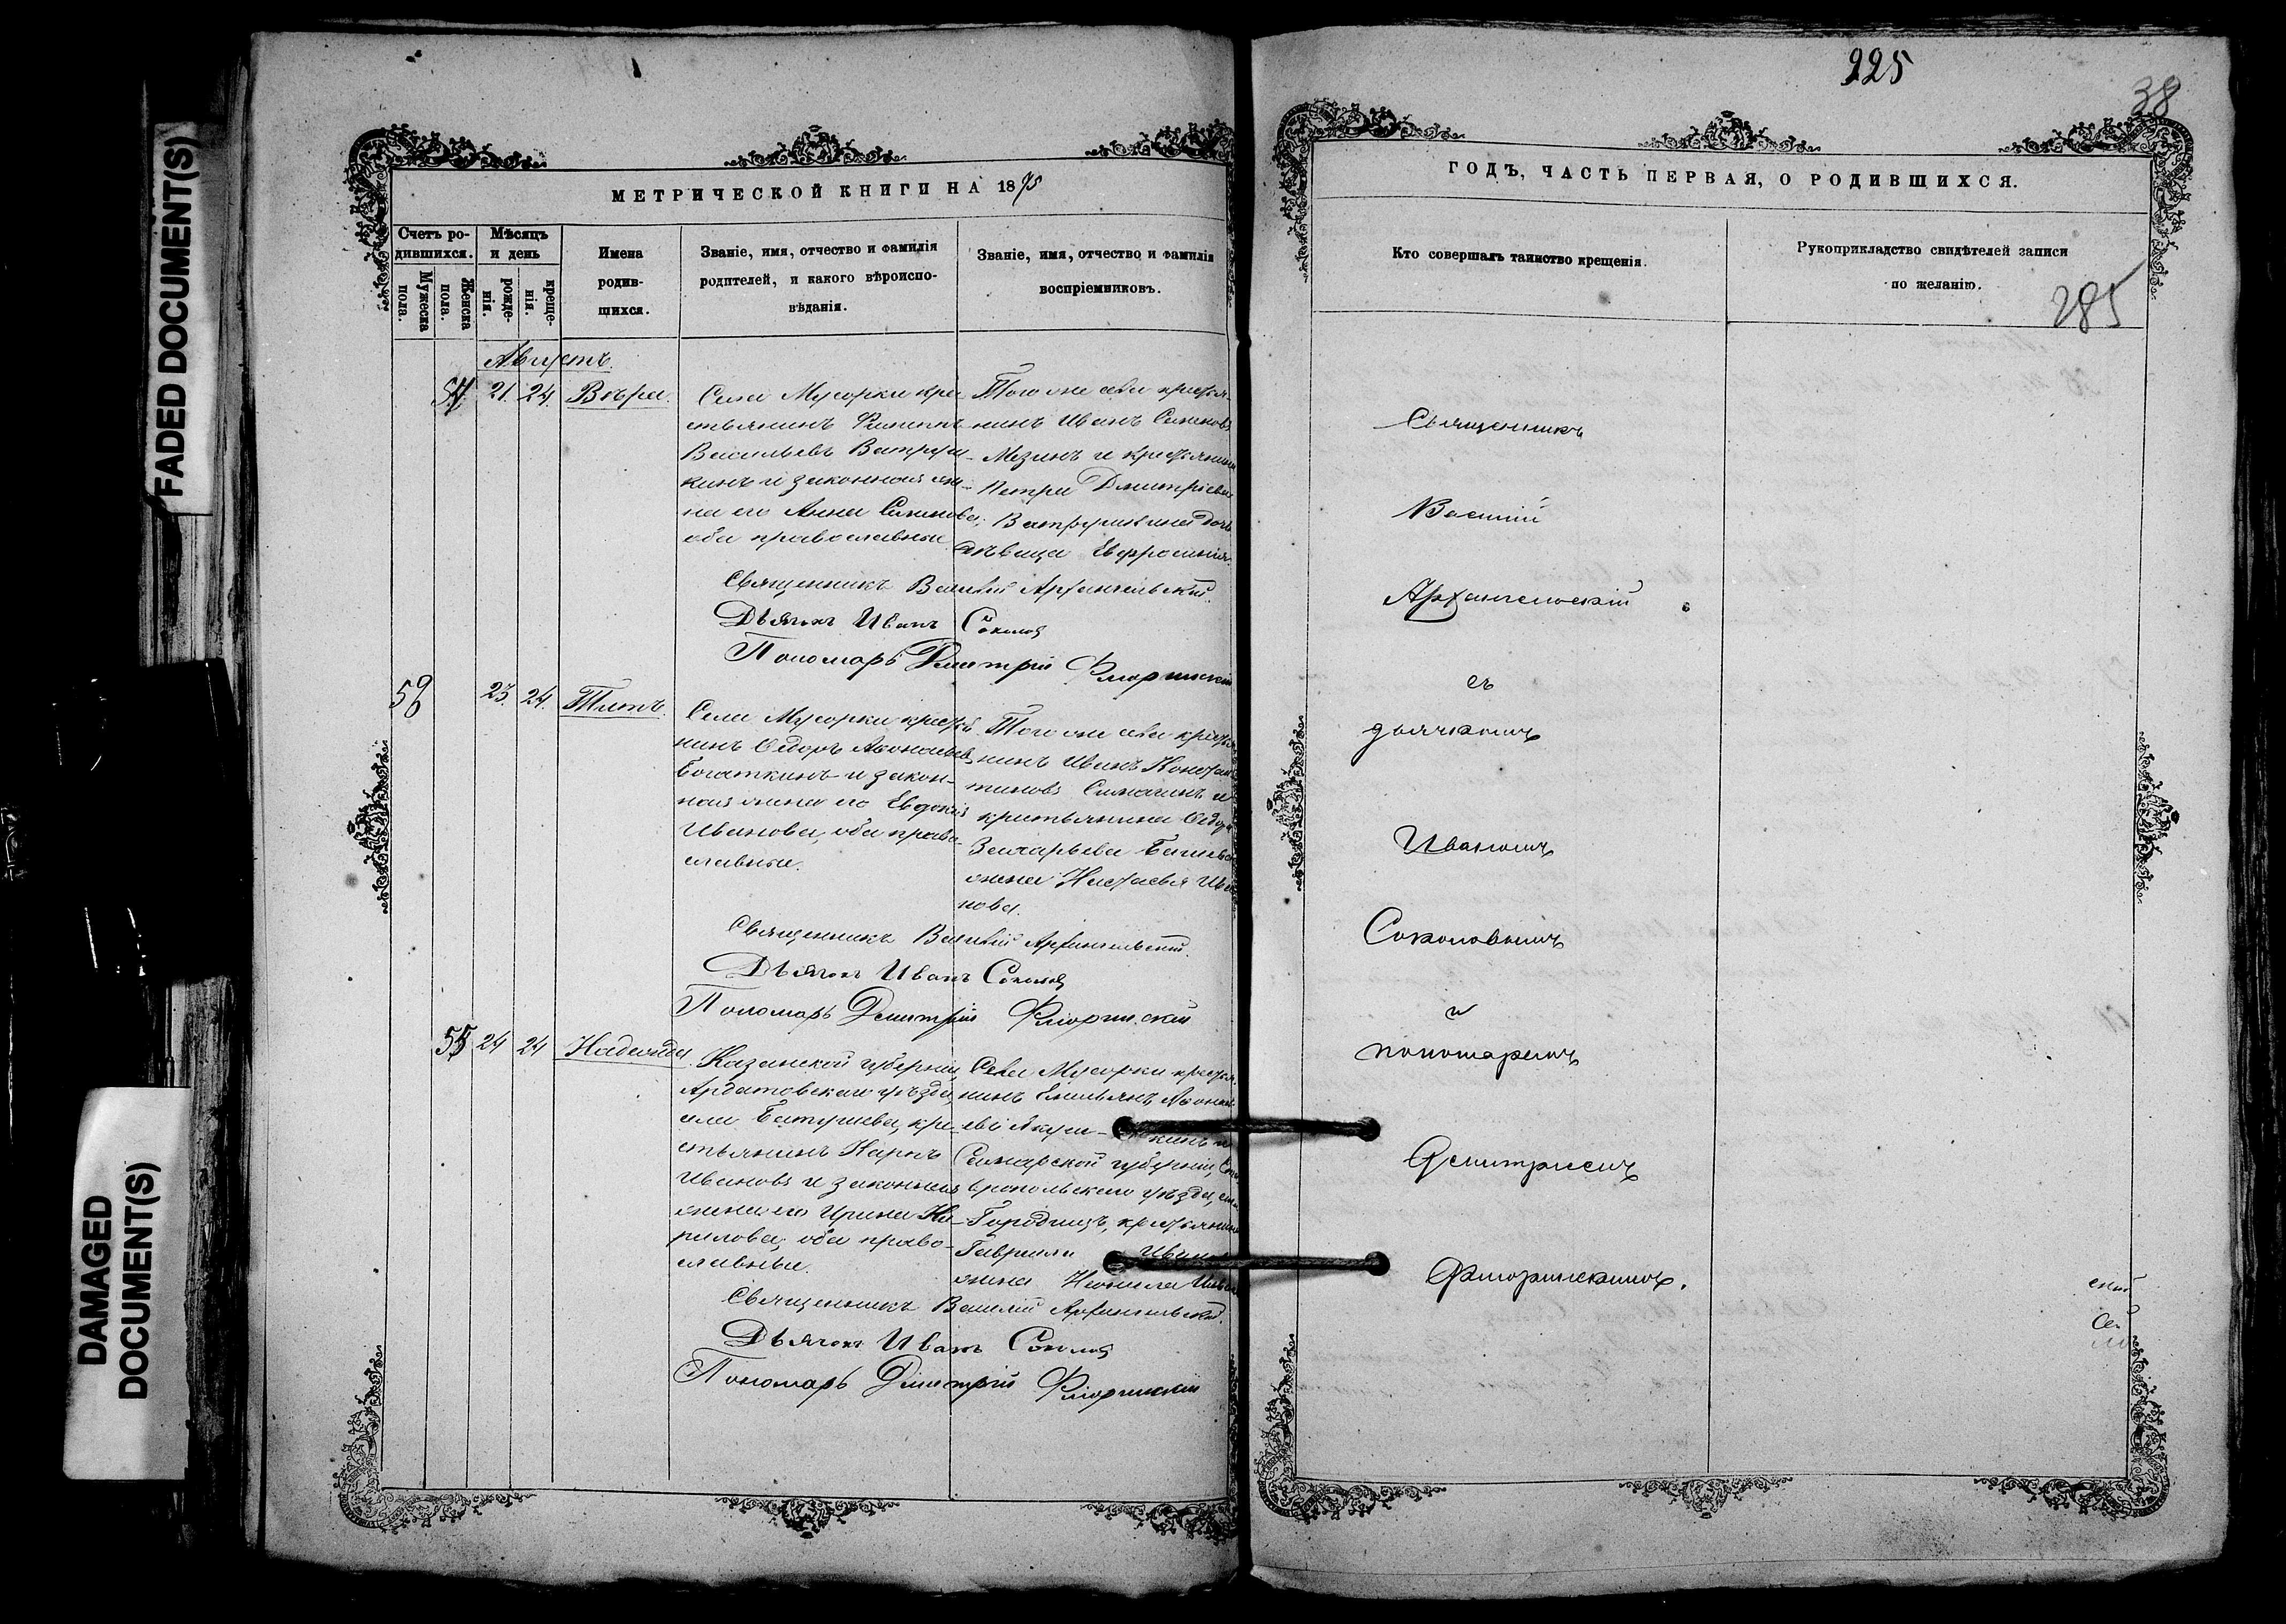 FADED DOCUMENT(S)
DAMAGED
DOCUMENT(S)
МЕТРИЧЕСКОЙ КНИГИ НА 1875
Счетъ ро-
дившихся.
Мужеска
пола.
Женска
пола.
Мѣсяцъ
и день
рожде-
нія.
креще-
нія.
Имена
родив-
шихся.
Званіе, имя, отчество и фамилія
родителей, и какого вѣроиспо-
вѣданія.
Званіе, имя, отчество и фамилія
воспріемниковъ.
Августъ.
54. 21. 24. Вѣра.
Села Мусорки кре-
стьянинъ Филиппъ
Васильевъ Ватруш-
кинъ и законная же-
на его Анна Семенова,
оба православные.
Того же села крестья-
нинъ Иванъ Семеновъ
Мезинъ и крестьянина
Петра Дмитріева
Ватрушкина дочь
дѣвица Евфросинія.
Священникъ Василій Архангельскій.
Дьячокъ Иванъ Соколов
Пономарь Димитрій Флоринскій
23. 24. Титъ.
Села Мусорки крестья
нинъ Ѳедоръ Аѳонасьев
Богаткинъ и закон-
ная жена его Евдокія
Иванова, оба право-
славные.
Того же села крестья
нинъ Иванъ Констан
тиновъ Симагинъ и
крестьянина Ѳедора
Захарьева
жена Настасья Ива
нова.
Священникъ Василій Архангельскій.
Дьячок Иванъ Соколов
Пономарь Димитрій Флоринскій
55 24 24 Надежда.
Казанской губерніи,
Ардатовскаго уѣзда,
села Батушева, кре-
стьянинъ Карпъ
Ивановъ и законная
жена его Ирина Ки-
рилова, оба право-
славные.
Села Мусорки крестья-
нинъ Емельянъ Аѳонась
кинъ и
Самарской губерніи, Ста
вропольскаго уѣзда, села
крестьянина
Гавріила Иванова
жена Неонила
Священникъ Василій Архангельскій.
Дьячокъ Иванъ Соколов
Пономарь Димитрій Флоринскій
225
38
ГОДЪ, ЧАСТЬ ПЕРВАЯ, О РОДИВШИХСЯ.
Кто совершалъ таинство крещенія.
Рукоприкладство свидѣтелей записи
по желанію.
285
Священникъ
Василій
Архангельскій
съ
дьячкомъ
Иваномъ
Соколовымъ
и
пономаремъ
Димитріемъ
Флоринскимъ.